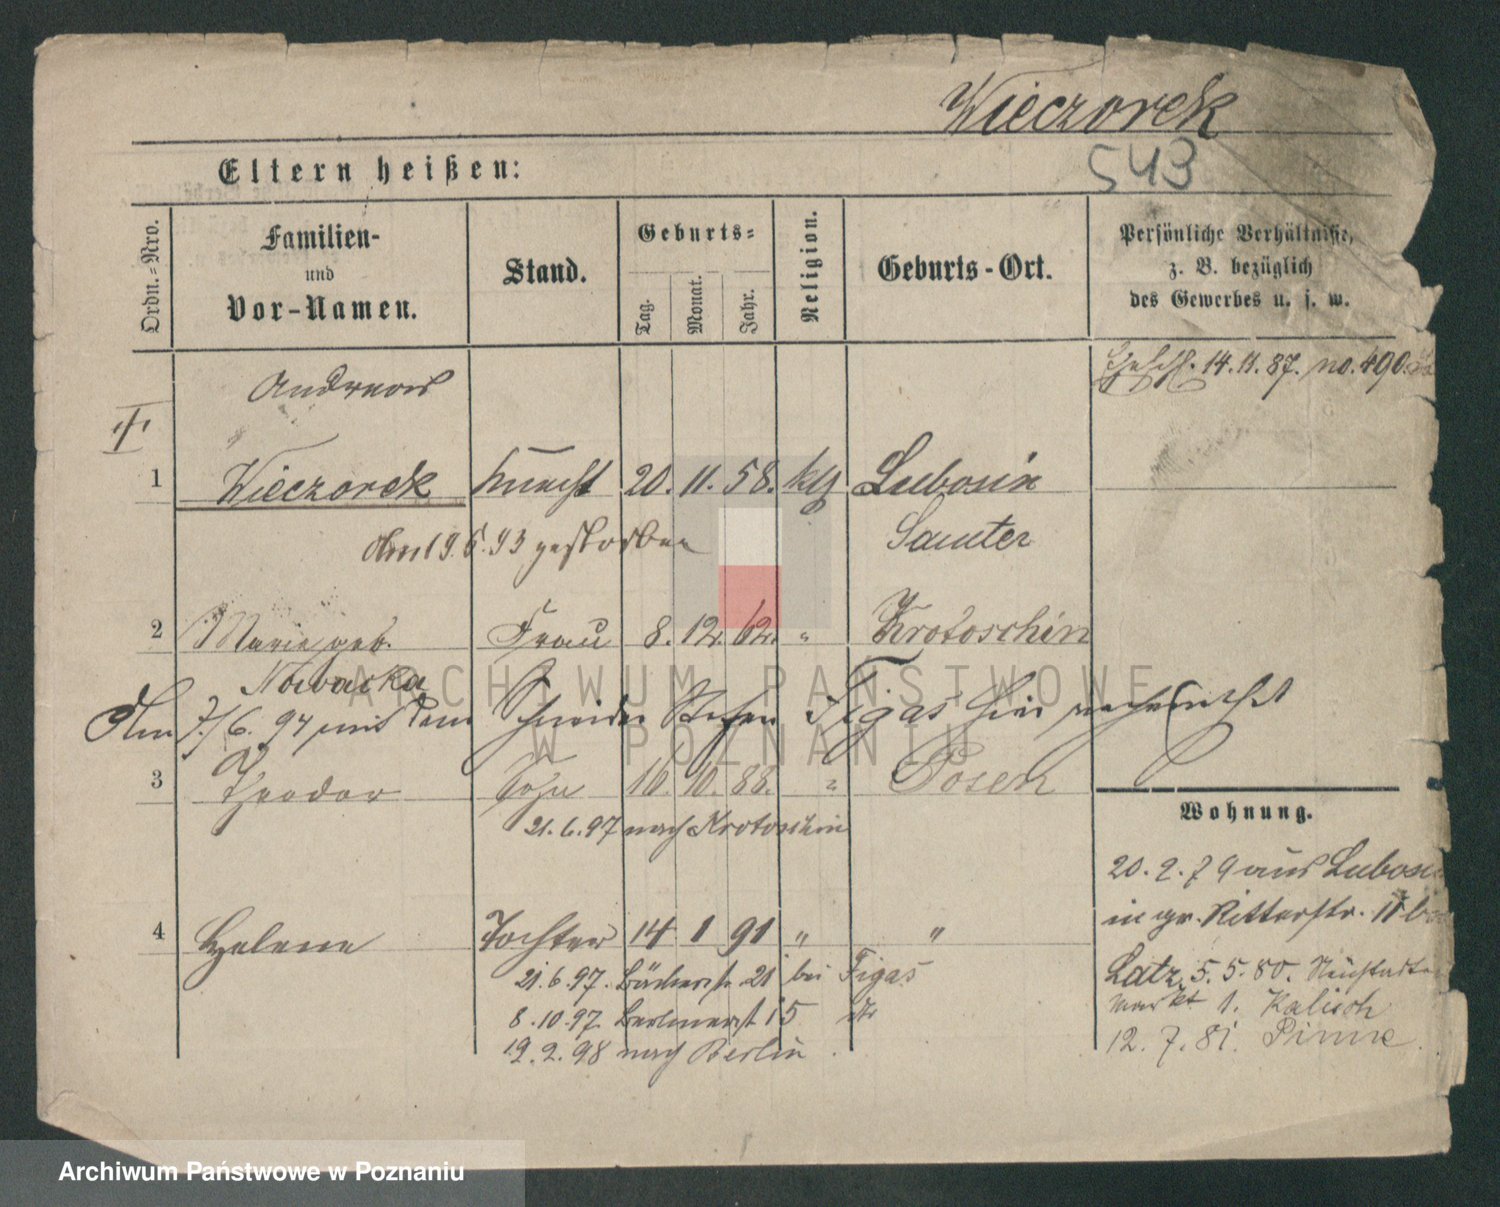 Wieczorek
543
Eltern heißen:
Ordn.-Nro.
Familien-
und
Vor-Namen.
Stand.
Geburts-
Tag.
Monat.
Jahr.
Religion.
Geburts-Ort.
Persönliche Verhältnisse,
z. B. bezüglich
des Gewerbes u. s. w.
14.11.87. no. 490.
Andreas
1 Wieczorek Knecht 20. 11. 58. kth Lubosin
Samter
Am 19.6.93 gestorben
2 Marie geb. Frau 8. 12. 62. " Krotoschin
Nowacka
Am 7/6. 97 mit dem Schneider Stefan Figas hier
3 Theodor Sohn 10. 10. 88. " Posen
21.6.97 nach Krotoschin
4 Helene Tochter 14 1 91 " "
21.6.97. Bäckerstr. 21 bei Figas
8.10.97. Berlinerst 15
19.2.98 nach Berlin.
Wohnung.
20.2.79 aus Lubosin
in gr. Ritterstr. 11 b
Latz, 5.5.80. Neustadter
markt 1. Kalisch
12.7.81. Pinne.
ARCHIWUM PAŃSTWOWE
W POZNANIU
Archiwum Państwowe w Poznaniu